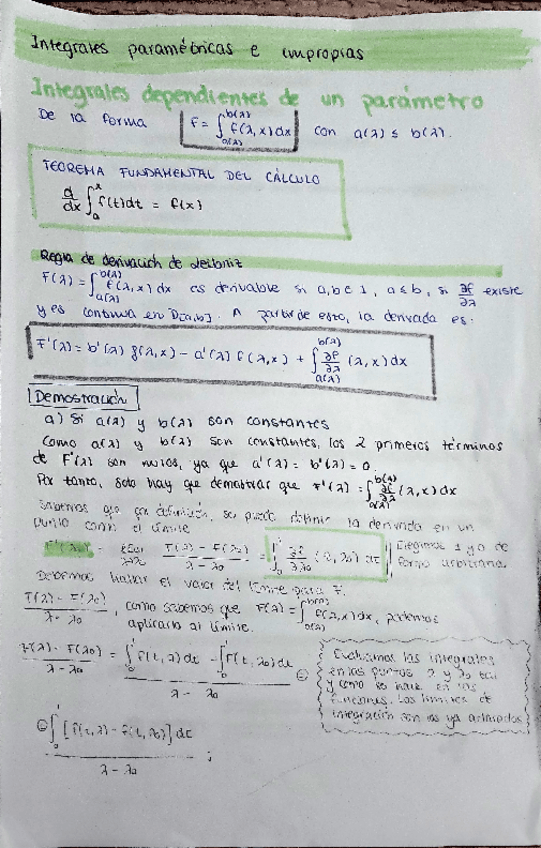 Integrales paramétricas e impropias
Integrales dependientes de un parámetro
De la forma F = ∫_{a(λ)}^{b(λ)} f(λ,x)dx con a(λ) ≤ b(λ).
TEOREMA FUNDAMENTAL DEL CÁLCULO
d/dx ∫_a^x f(t)dt = f(x)
Regla de derivación de Leibniz
F(λ) = ∫_{a(λ)}^{b(λ)} f(λ,x) dx es derivable si a,b ∈ 1, a ≤ b, si ∂f/∂λ existe
y es continua en D[a,b]. A partir de esto, la derivada es:
F'(λ) = b'(λ) f(λ,x) - a'(λ) f(λ,x) + ∫_{a(λ)}^{b(λ)} ∂f/∂λ (λ,x)dx
Demostración
a) Si a(λ) y b(λ) son constantes
Como a(λ) y b(λ) son constantes, los 2 primeros términos
de F'(λ) son nulos, ya que a'(λ) = b'(λ) = 0.
Por tanto, solo hay que demostrar que F'(λ) = ∫_{a(λ)}^{b(λ)} ∂f/∂λ (λ,x)dx
Sabemos que por definición, se puede definir la derivada en un
punto como el límite
F'(λ0) = lim_{λ→λ0} F(λ) - F(λ0) / λ - λ0 = ∫_0^1 ∂f/∂λ0 (t, λ0) dt Elegimos 1 y 0 de
forma arbitraria.
Debemos hallar el valor del límite para F.
F(λ) - F(λ0) / λ - λ0, como sabemos que F(λ) = ∫_{a(λ)}^{b(λ)} f(λ,x)dx, podemos
aplicarlo al límite.
F(λ) - F(λ0) / λ - λ0 = ∫_0^1 f(t,λ)dt - ∫_0^1 f(t,λ0)dt / λ - λ0 ⊜
Evaluamos las integrales
en los puntos λ y λ0 tal
y como se hace en las
funciones. Los límites de
integración son los ya aclarados
⊜ ∫_0^1 [f(t,λ) - f(t,λ0)]dt / λ - λ0 ;